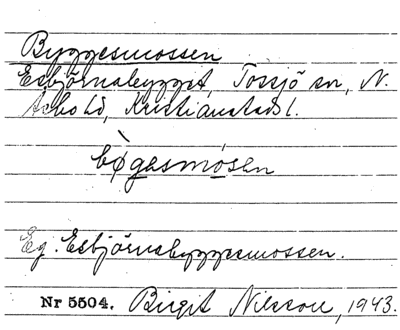 Byggesmossen
Esbjörnabygget, Tossjö sn, N.
Åsbo hd, Kristianstads l.
bø̀gesmósen
Eg. Esbjörnabyggesmossen.
Nr 5504. Birgit Nilsson, 1943.